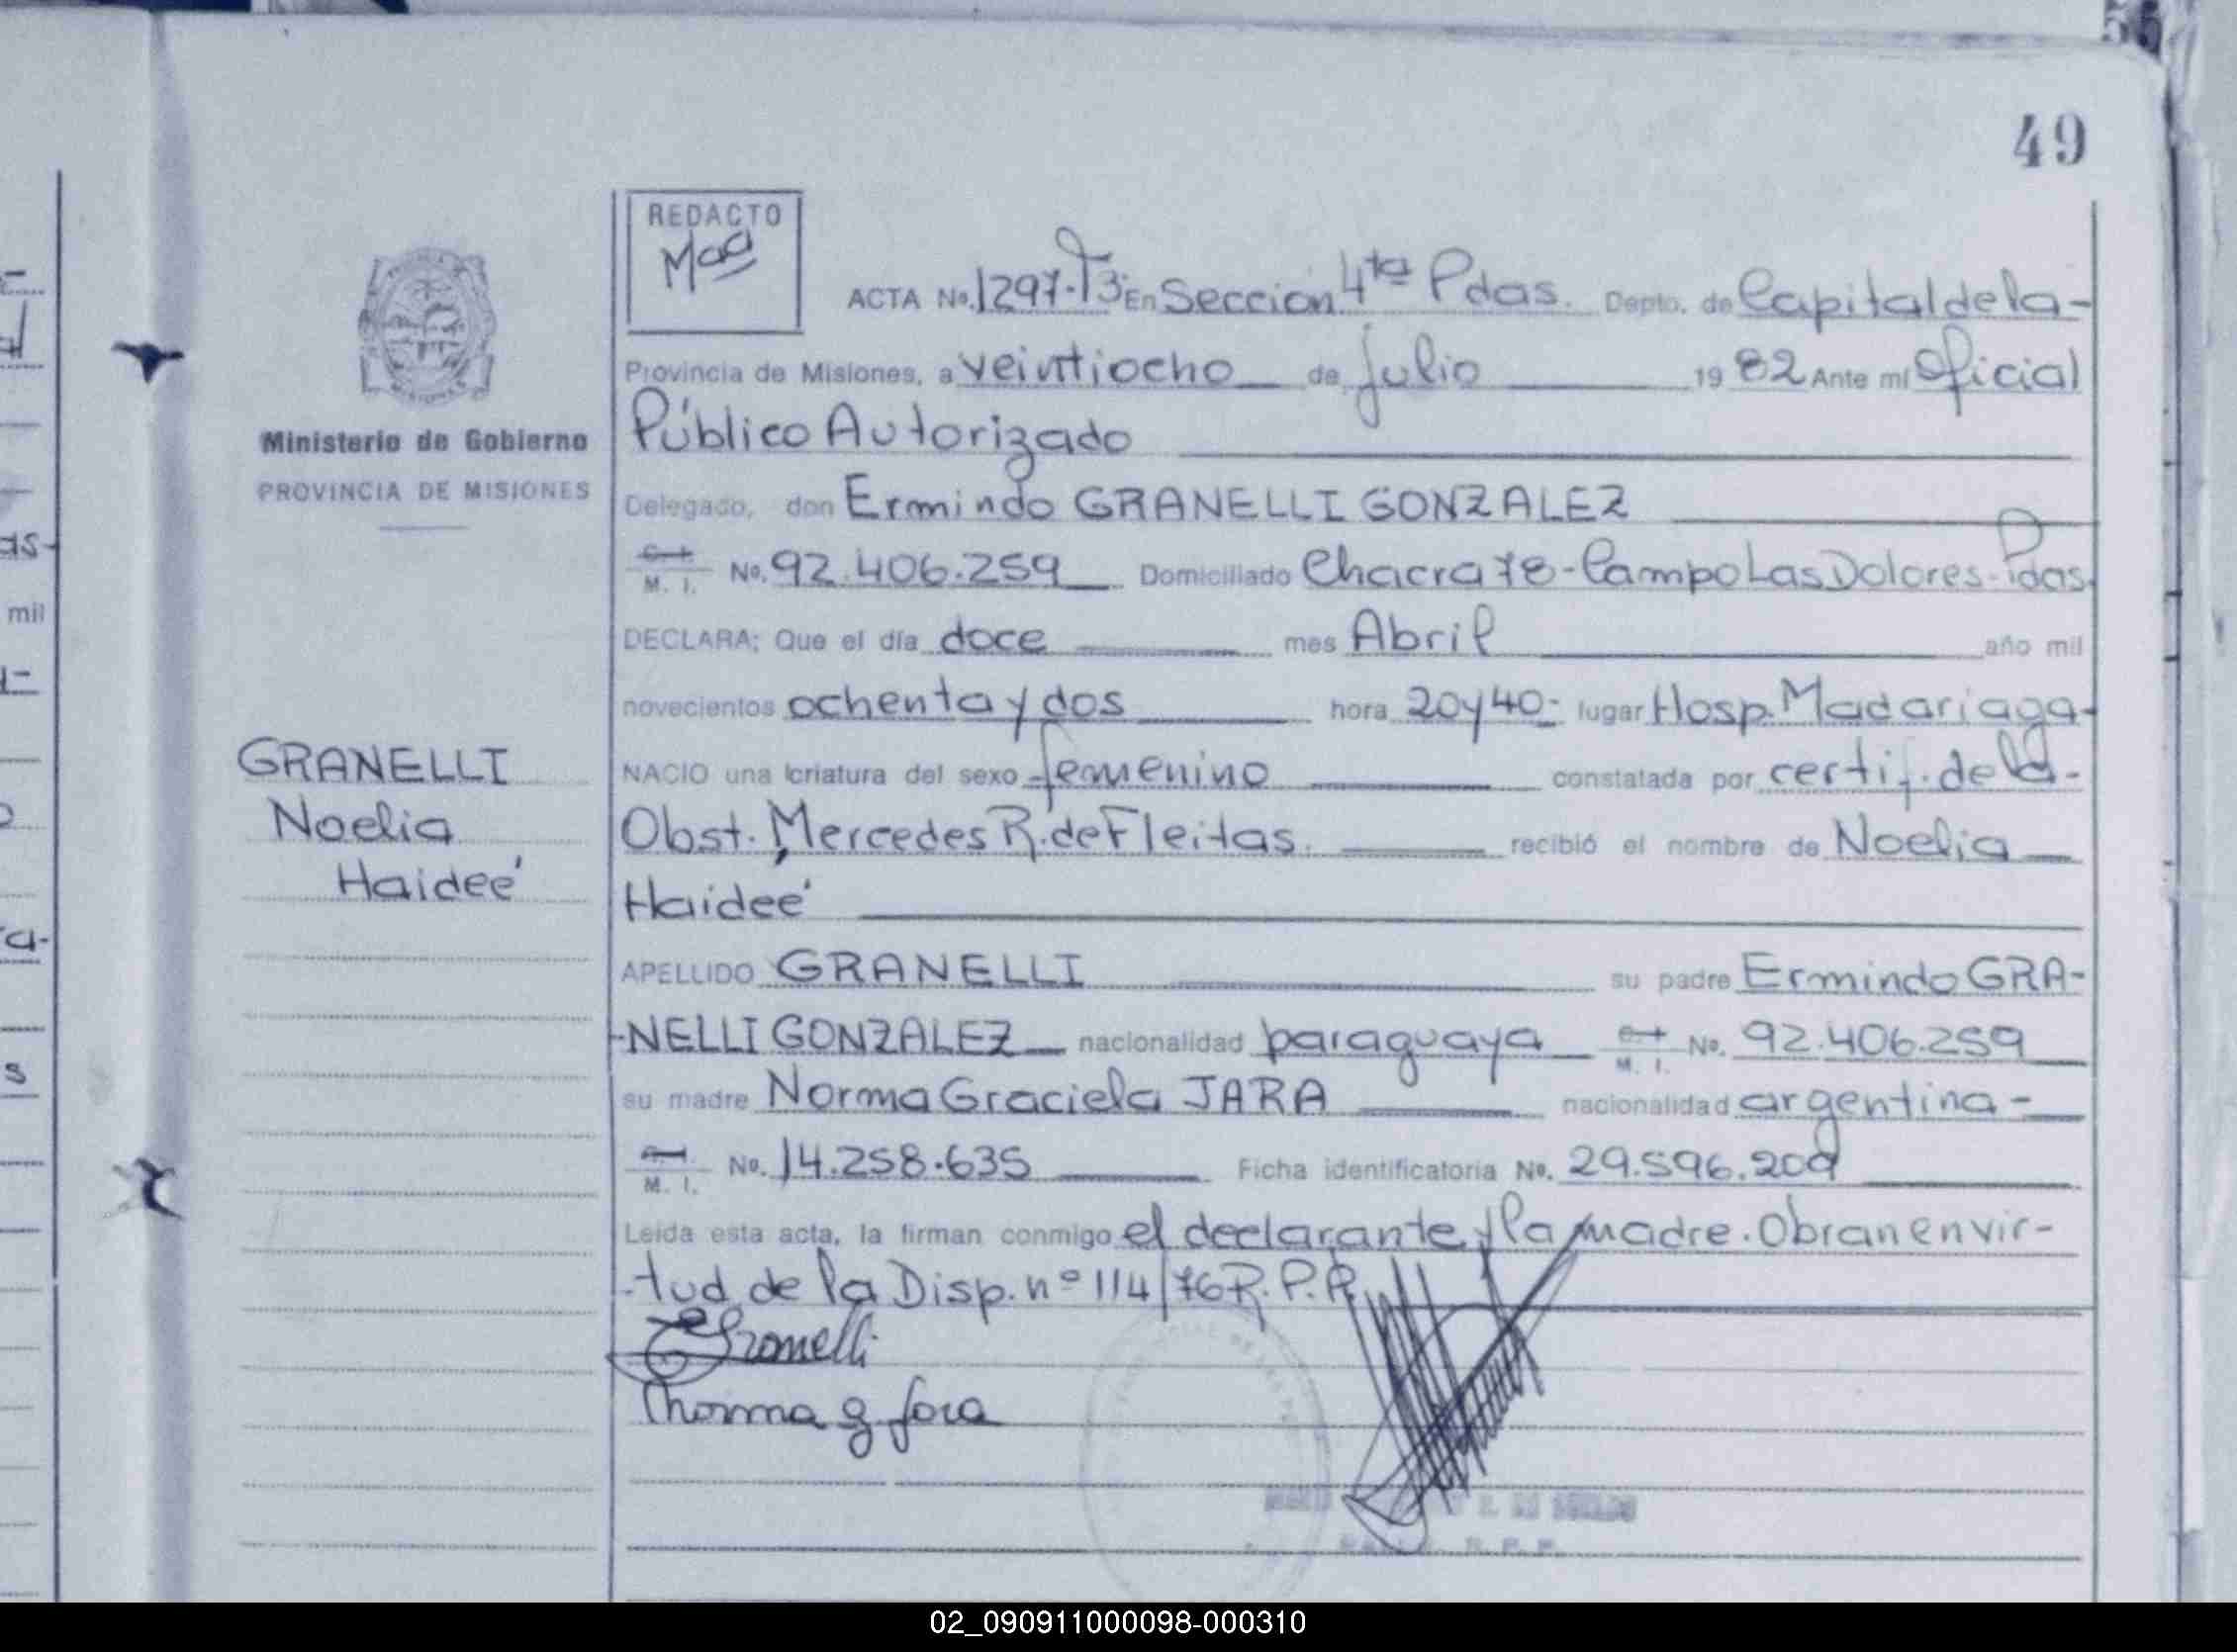 49
REDACTO
ACTA No. 1297-T3º En Sección 4ta Pdas. Depto. de Capital de la-
Provincia de Misiones, a veintiocho de Julio 1982 Ante mi Oficial
Público Autorizado
Ministerio de Gobierno
PROVINCIA DE MISIONES
Delegado, don Ermindo GRANELLI GONZALEZ
M. I. No. 92.406.259 Domiciliado Chacra 78-Campo Las Dolores-Pdas.
DECLARA; Que el día doce mes Abril año mil
novecientos ochenta y dos hora 20y40- lugar Hosp. Madariaga-
GRANELLI
Noelia
Haideé
NACIO una criatura del sexo femenino constatada por certif. de la-
Obst. Mercedes R. de Fleitas. recibió el nombre de Noelia
Haideé
APELLIDO GRANELLI su padre Ermindo GRA-
-NELLI GONZALEZ nacionalidad paraguaya M. I. No. 92.406.259
su madre Norma Graciela JARA nacionalidad argentina-
M. I. No. 14.258.635 Ficha identificatoria No. 29.596.209
Leída esta acta, la firman conmigo el declarante y la madre. Obran en vir-
-tud de la Disp. nº 114/76 R.P.P.
Granelli
Norma G Jara
mil
02_090911000098-000310